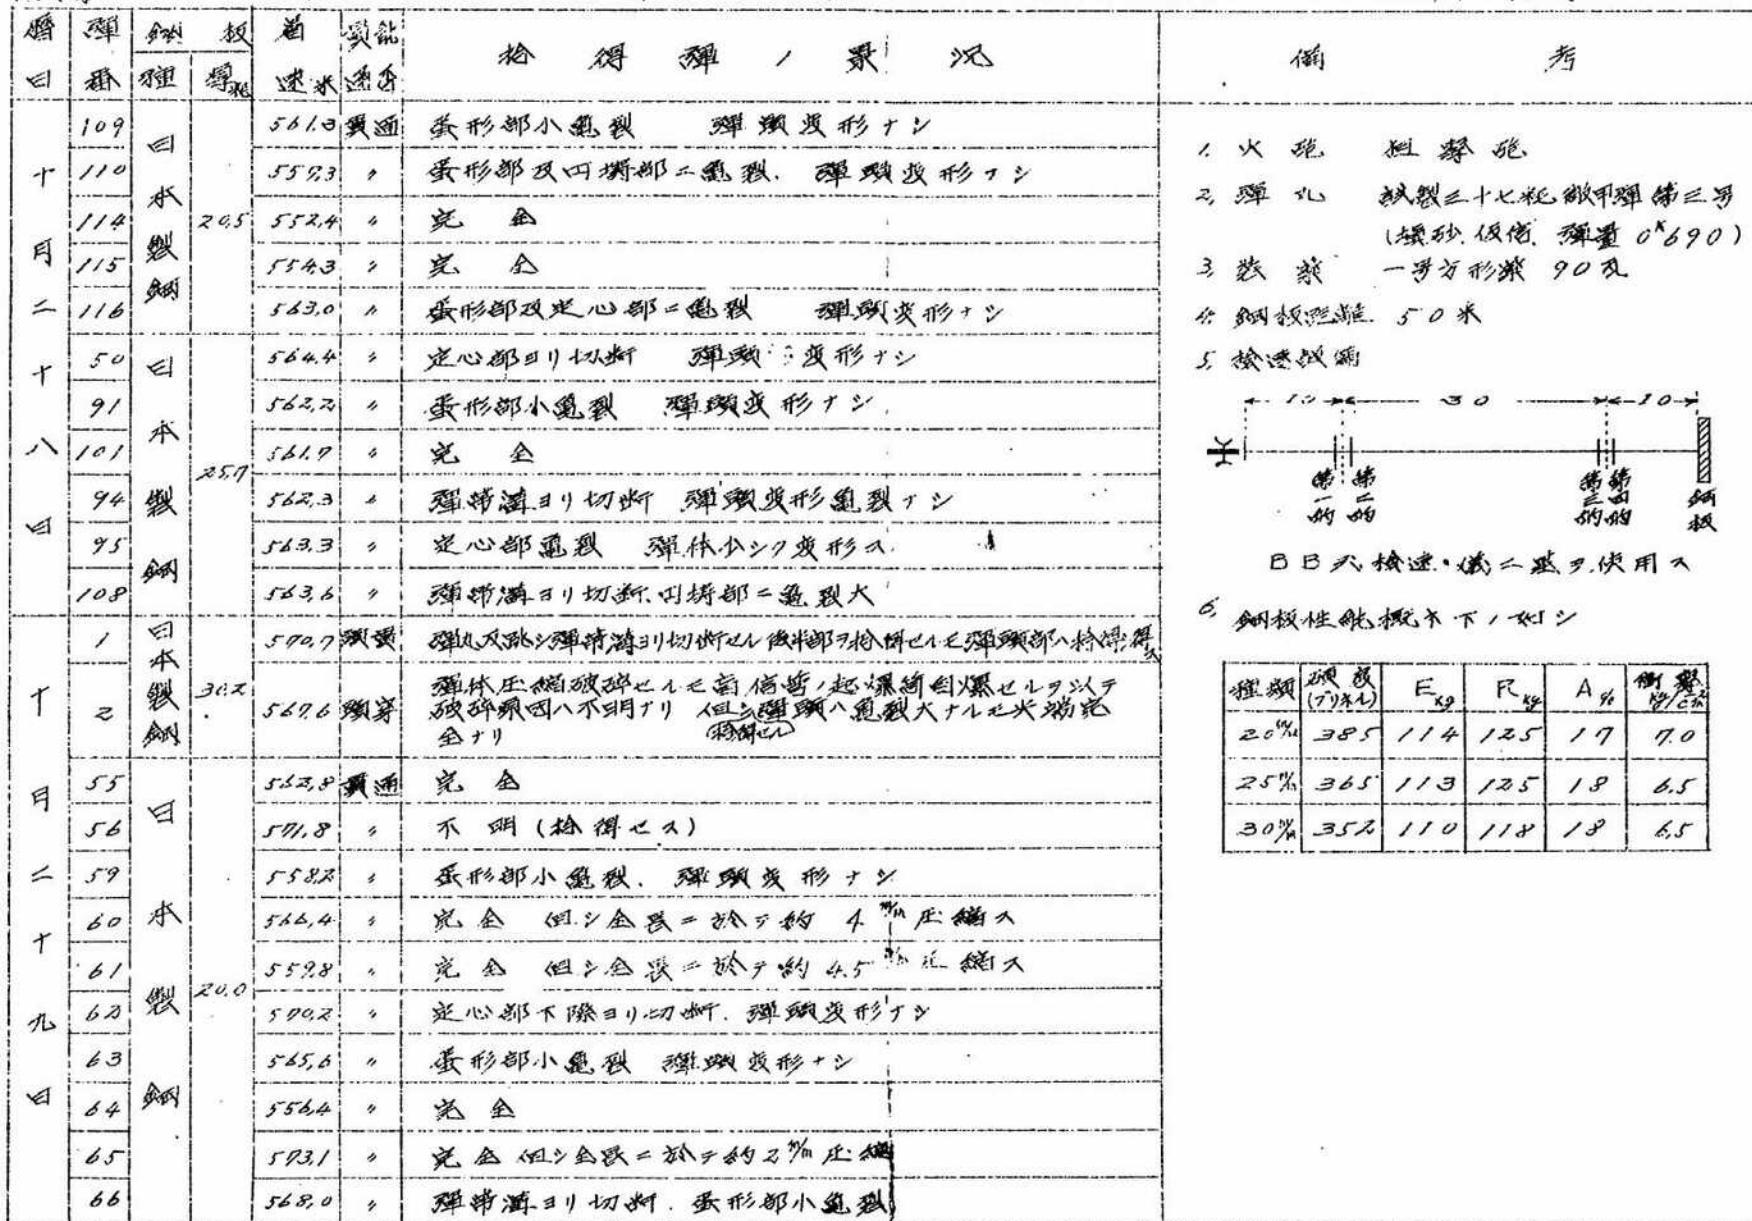 暦日 弾番 鋼板 種 厚粍 着速米 貫通能否 拾得弾ノ景況 備考
十月二十八日
109 日本製鋼 20.5 561.3 貫通 蛋形部小亀裂 弾頭変形ナシ
110 557.3 〃 蛋形部及円壔部ニ亀裂. 弾頭変形ナシ
114 552.4 〃 完全
115 554.3 〃 完全
116 563.0 〃 蛋形部及定心部ニ亀裂 弾頭変形ナシ
50 日本製鋼 25.7 564.4 〃 定心部ヨリ切断 弾頭変形ナシ
91 562.2 〃 蛋形部小亀裂 弾頭変形ナシ
101 561.7 〃 完全
94 562.3 〃 弾帯溝ヨリ切断 弾頭変形亀裂ナシ
95 563.3 〃 定心部亀裂 弾体少シク変形ス
108 563.6 〃 弾帯溝ヨリ切断.円壔部ニ亀裂大
十月二十九日
1 日本製鋼 30.2 570.7 弾丸反跳シ弾帯溝ヨリ切断セル後半部ヲ拾得セルモ弾頭部ハ拾得シ得ス
2 567.6 弾体圧縮破砕セルモ高信管ノ起爆筒自爆セルヲ以テ
破砕原因ハ不明ナリ 但シ拾得セル弾頭ハ亀裂大ナルモ尖端完
全ナリ
55 日本製鋼 20.0 562.8 貫通 完全
56 571.8 〃 不明(拾得セス)
59 558.2 〃 蛋形部小亀裂. 弾頭変形ナシ
60 566.4 〃 完全 但シ全長ニ於テ約 4 m/m 圧縮ス
61 559.8 〃 完全 但シ全長ニ於テ約 4.5 m/m 圧縮ス
62 570.2 〃 定心部下際ヨリ切断. 弾頭変形ナシ
63 565.6 〃 蛋形部小亀裂 弾頭変形ナシ
64 556.4 〃 完全
65 573.1 〃 完全 但シ全長ニ於テ約 2 m/m 圧縮
66 568.0 〃 弾帯溝ヨリ切断. 蛋形部小亀裂
1. 火砲 狙撃砲
2. 弾丸 試製三十七粍徹甲弾第三号
(填砂.仮信. 弾量 0k690)
3. 装薬 一号方形薬 90瓦
4. 鋼板距離 50米
5. 検速設備
10 30 10
第一的 第二的 第三的 第四的 鋼板
BB式検速儀二基ヲ使用ス
6. 鋼板性能概ネ下ノ如シ
種類 硬度(ブリネル) E kg R kg A % 衝撃 kg/cm²
20 m/m 385 114 125 17 7.0
25 m/m 365 113 125 18 6.5
30 m/m 352 110 118 18 6.5